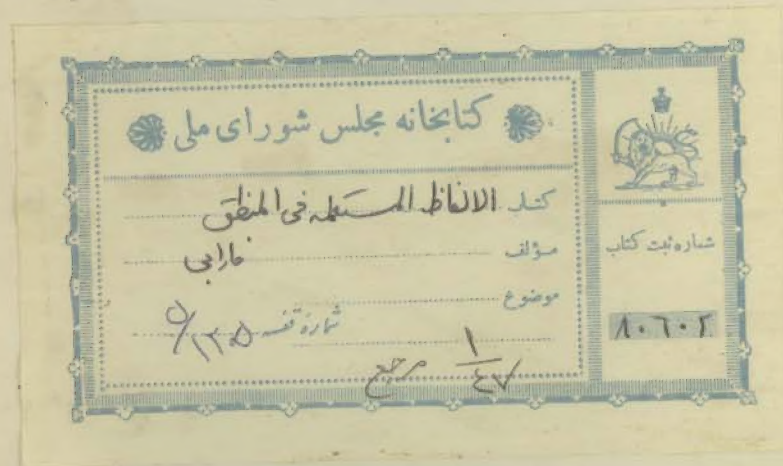 کتابخانه مجلس شورای ملی
کتاب الالفاظ المستعمله فی المنطق
مؤلف فارابی
موضوع
شماره قفسه ۱۳۰۵
۱
۴۷
مرجع
شماره ثبت کتاب
۸۰۶۰۲